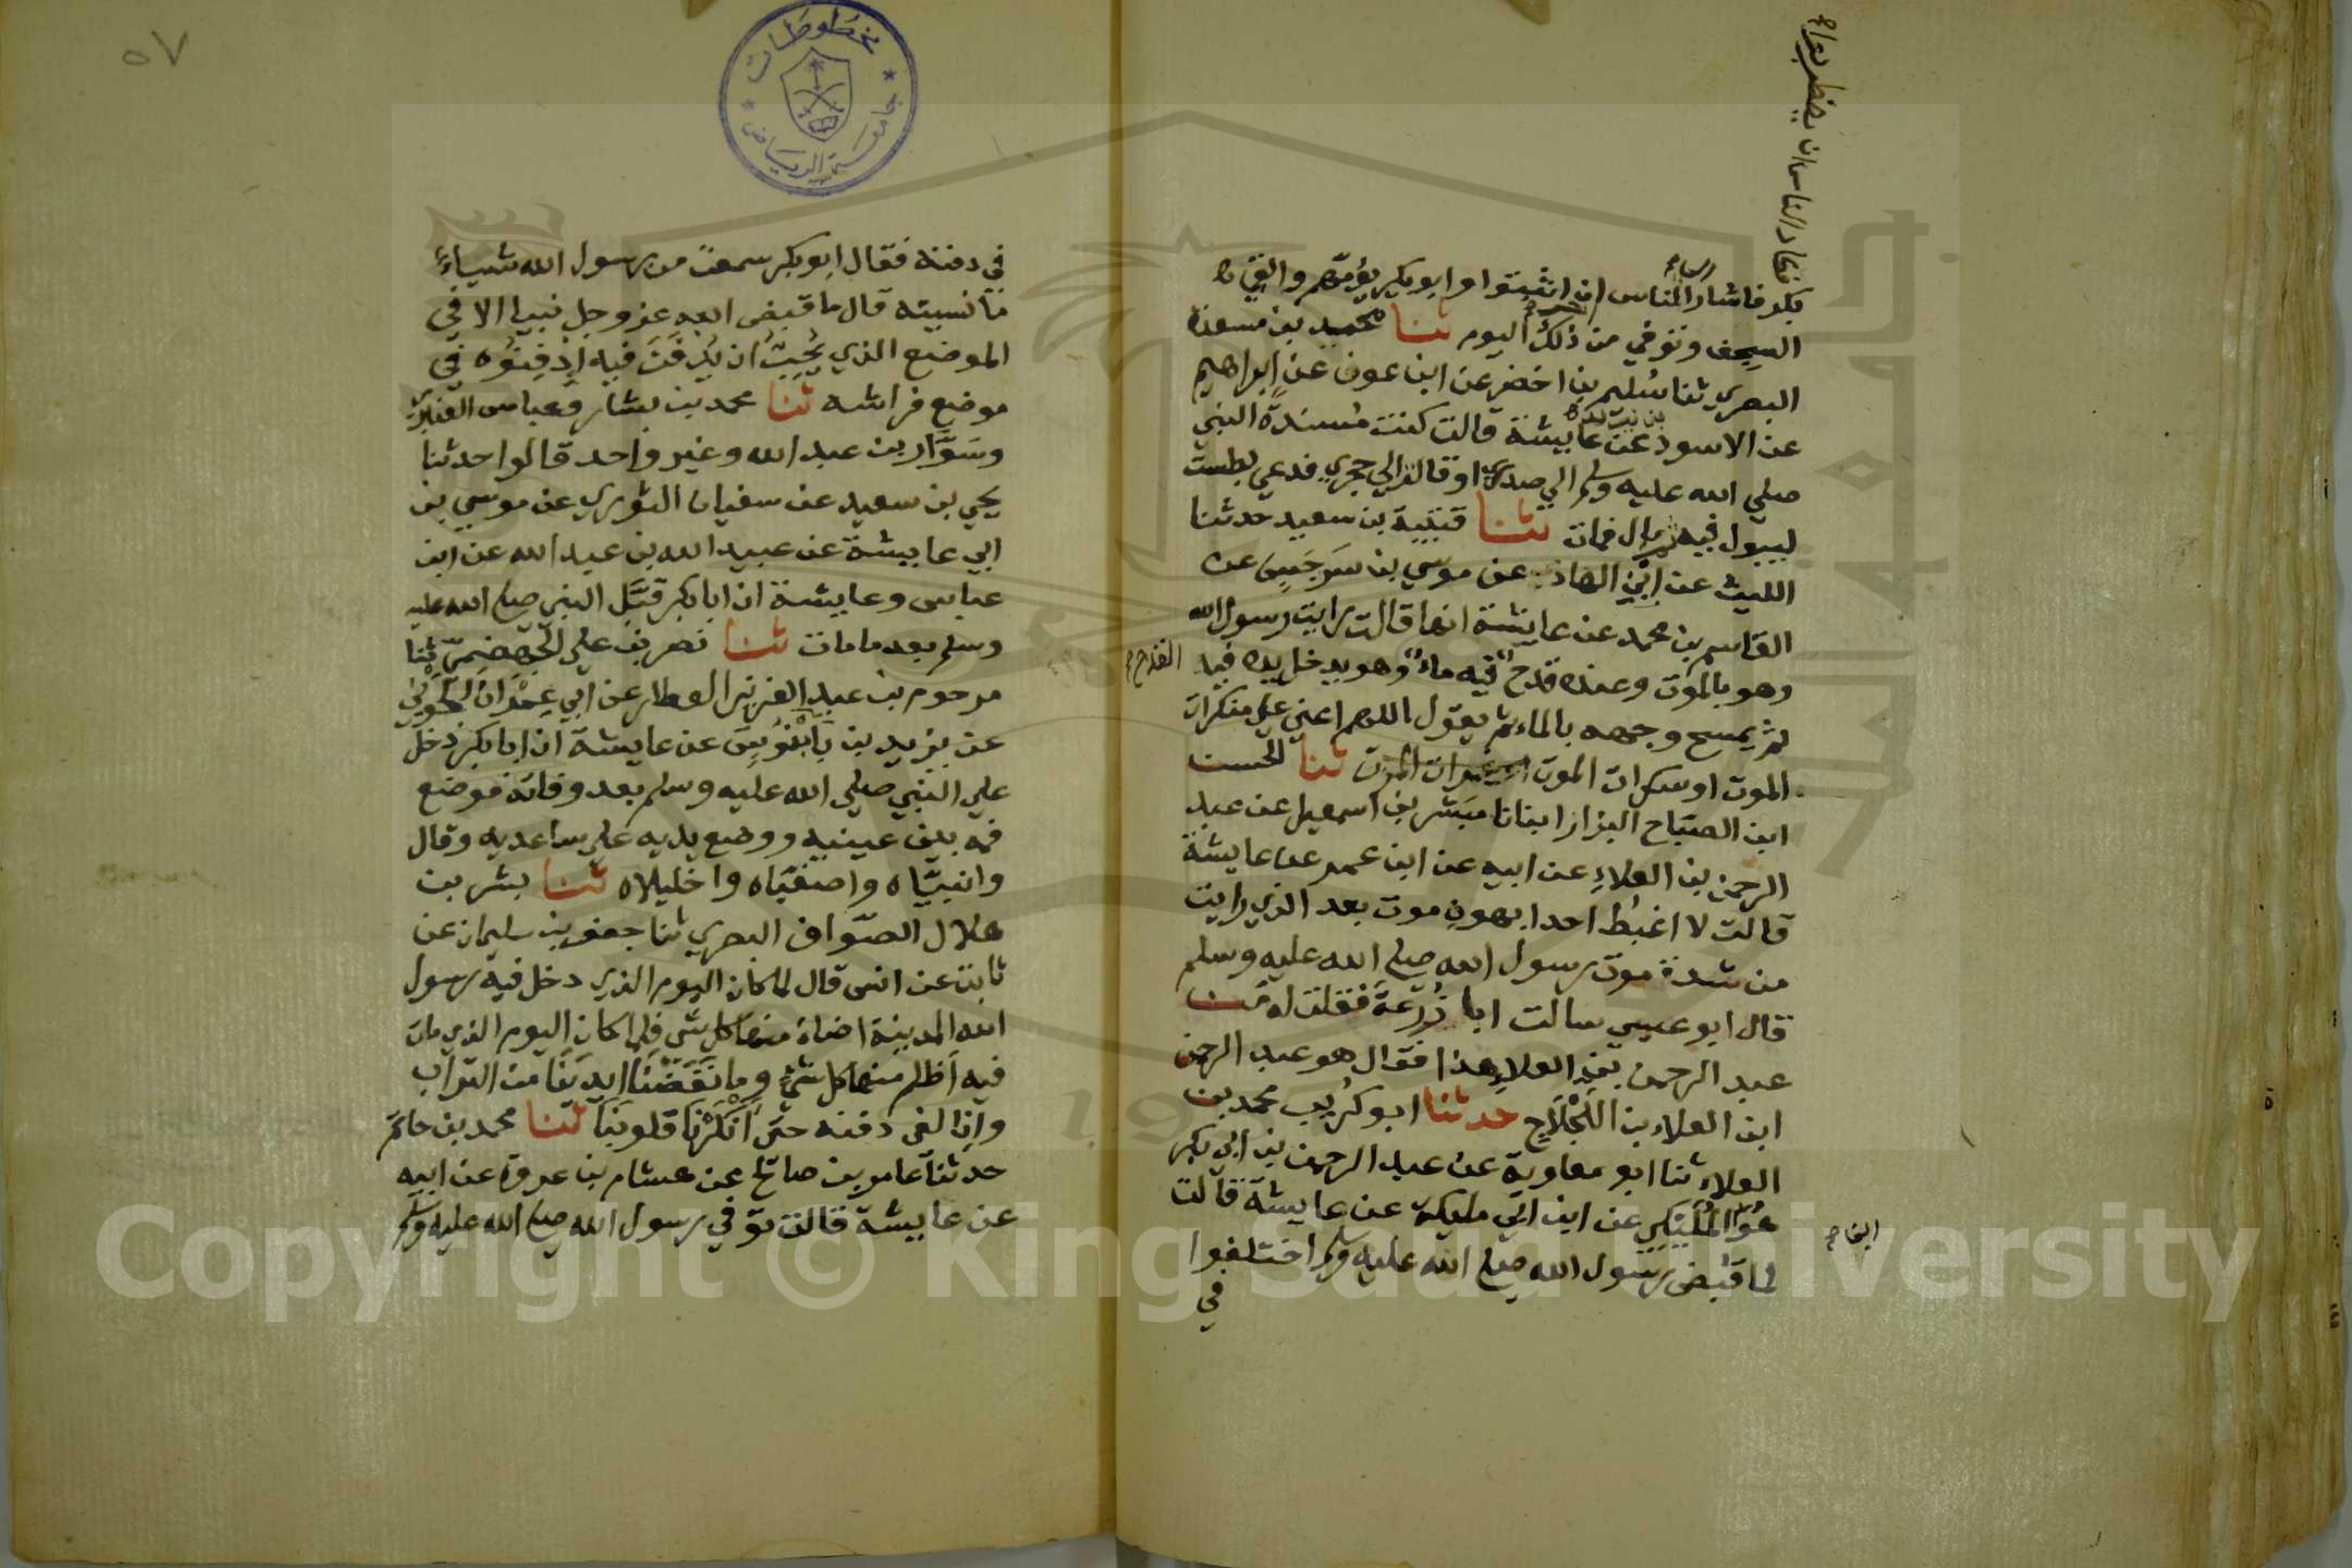 فكاد الناس ان يضطربوا
بكر فاشار الي الناس ان اثبتوا وابو بكر يؤمهم والقي
السجف وتوفي من ذلك اليوم ثنا حميد بن مسعدة
البصري ثنا سُليم بن اخضر عن ابن عون عن ابراهيم
عن الاسود عن عايشة قالت كنت مُسندة النبي
صلي الله عليه وسلم الي صدري او قالت الي حجري فدعي بطست
ليبول فيه ثم بال فمات ثنا قتيبة بن سعيد حدثنا
الليث عن ابن الهاد عن موسي بن سَرجَس عن
القاسم بن محمد عن عايشة انها قالت رايت رسول الله
وهو بالموت وعنده قدح فيه ماء وهو يدخل يده في
القدح
ثم يمسح وجهه بالماء ثم يقول اللهم اعني علي منكرات
الموت او سكرات الموت ثنا الحسن
ابن الصبّاح البزار انبانا مبَشر بن اسمعيل عن عبد
الرحمن بن العلاءِ عن ابيه عن ابن عمر عن عايشة
قالت لا اغبُط احدا بهونِ موت بعد الذي رايت
من شدة موت رسول الله صلي الله عليه وسلم
قال ابو عيسي سالت ابا زُرعَة فقلت له مَن
عبد الرحمن بن العلاءِ هذا فقال هو عبد الرحمن
ابن العلاء بن اللَجْلَاجِ حدثنا ابو كُريب محمد بن
العلاء ثنا ابو معاوية عن عبد الرحمن بن ابي بكر
هُوَ المُلَيْكِي عن ابن ابي مليكة عن عايشة قالت
لما قبض رسول الله صلي الله عليه وسلم اختلفوا
في
في دفنه فقال ابو بكر سمعت من رسول الله شياءً
ما نسيته قال ما قبض الله عز وجل نبيا الا في
الموضع الذي يُحِبُّ ان يُدفَنَ فيه اِدْفِنُوْه في
موضع فراشه ثنا محمد بن بشار وعباس العنبري
وسَوّار بن عبد الله وغير واحد قالوا حدثنا
يحي بن سعيد عن سفيان الثوري عن موسي بن
ابي عايشة عن عبيد الله بن عبد الله عن ابن
عباس وعايشة ان ابا بكر قبَّل النبي صلي الله عليه
وسلم بعد ما مات ثنا نصر بن علي الجهضمي ثنا
مرحوم بن عبد العزيز العطار عن ابي عِمْرَان الجَوْني
عن يزيد بن بَابَنُوسَ عن عايشة ان ابا بكر دخل
علي النبي صلي الله عليه وسلم بعد وفاته فوضع
فمه بين عينيه ووضع يديه علي ساعديه وقال
وانبيّاه واصفيّاه واخليلاه ثنا بشر بن
هلال الصّواف البصري ثنا جعفر بن سليمان عن
ثابت عن انس قال لما كان اليوم الذي دخل فيه رسول
الله المدينة اضاء منها كل شي فلما كان اليوم الذي مات
فيه اَظلم منها كل شيٍ وما نَفَضْنَا ايديَنا من التراب
وإنا لفي دفنه حتى اَنْكَرْنا قلوبَنا ثنا محمد بن حاتم
حدثنا عامر بن صالح عن هشام بن عروة عن ابيه
عن عايشة قالت توفي رسول الله صلي الله عليه وسلم
٥٧
مخطوطات
جامعة الرياض
Copyright © King Saud University